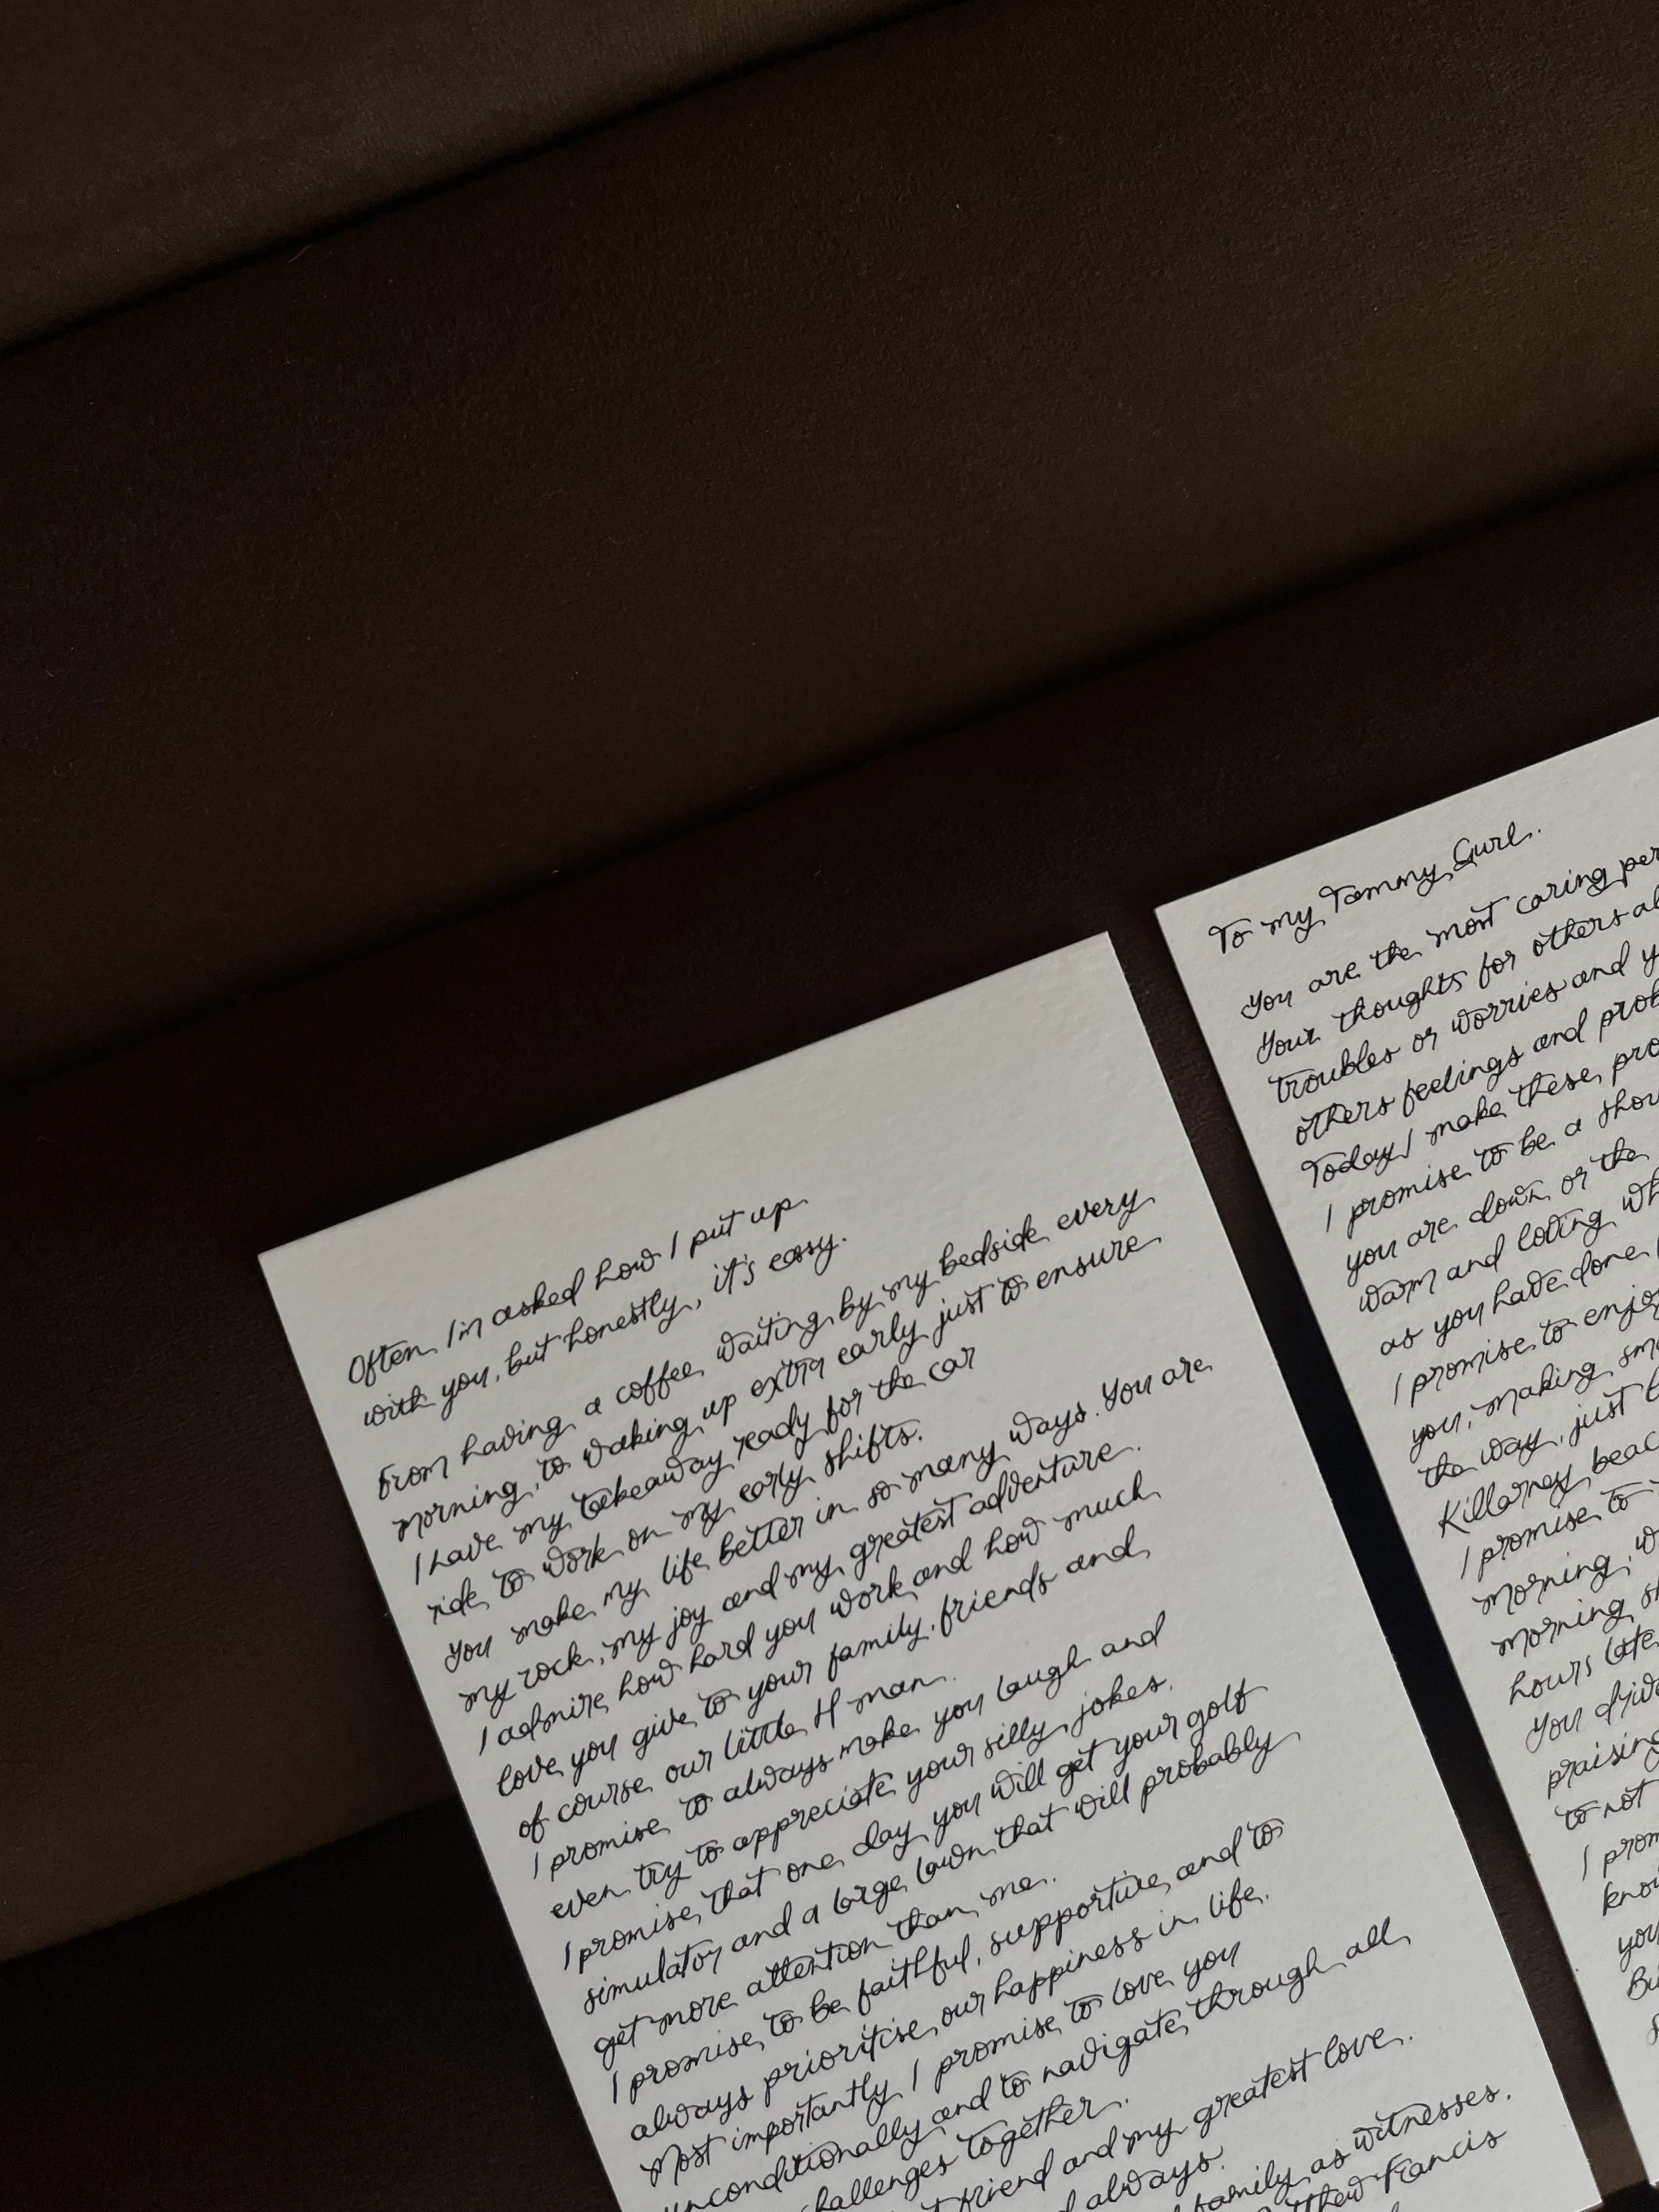 Often I'm asked how I put up
with you, but honestly, it's easy.
From having a coffee waiting by my bedside every
morning, to waking up extra early just to ensure
I have my takeaway ready for the car
ride to work on my early shifts.
You make my life better in so many ways. You are
my rock, my joy and my greatest adventure.
I admire how hard you work and how much
love you give to your family, friends and
of course our little H man.
I promise to always make you laugh and
even try to appreciate your silly jokes.
I promise that one day you will get your golf
simulator and a large lawn that will probably
get more attention than me.
I promise to be faithful, supportive and to
always prioritise our happiness in life.
Most importantly I promise to love you
unconditionally and to navigate through all
challenges together.
friend and my greatest love.
always.
family as witnesses.
Francis
To my Tammy Gurl.
You are the most caring
Your thoughts for others
troubles or worries and
others feelings and
Today I make these
I promise to be a
you are down or the
warm and loving
as you have done
I promise to enjoy
you, making
the way, just
Killarney
I promise to
morning,
morning
hours
You
praising
to not
I